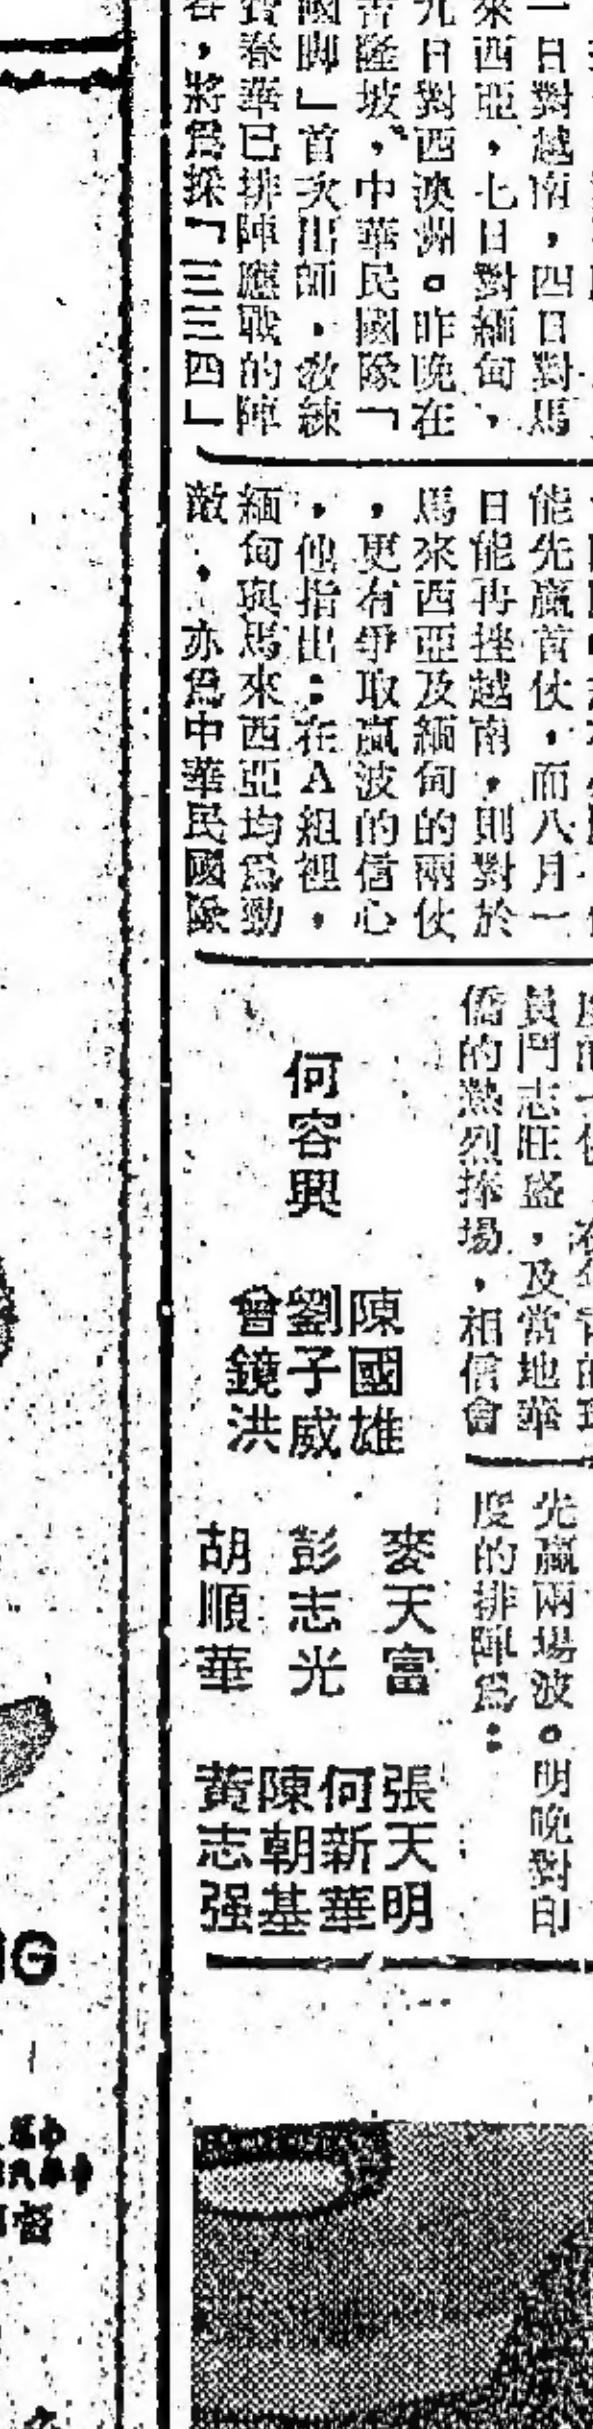 一日對越南，四日對馬
來西亞，七日對緬甸，
九日對西澳洲。昨晚在
吉隆坡，中華民國隊「
國脚」首次出師，教練
賀春華已排陣應戰的陣
容，將爲採「三三四」
能先贏首仗，而八月一
日能再挫越南，則對於
馬來西亞及緬甸的兩仗
，更有爭取贏波的信心
，他指出：在A組裡，
緬甸與馬來西亞均爲勁
敵，亦爲中華民國隊
員鬥志旺盛，及當地華
僑的熱烈捧場，相信會
先贏兩場波。明晚對印
度的排陣爲：
何容興
陳國雄
劉子威
曾鏡洪
麥天富
彭志光
胡順華
張天明
何新華
陳朝基
黃志强